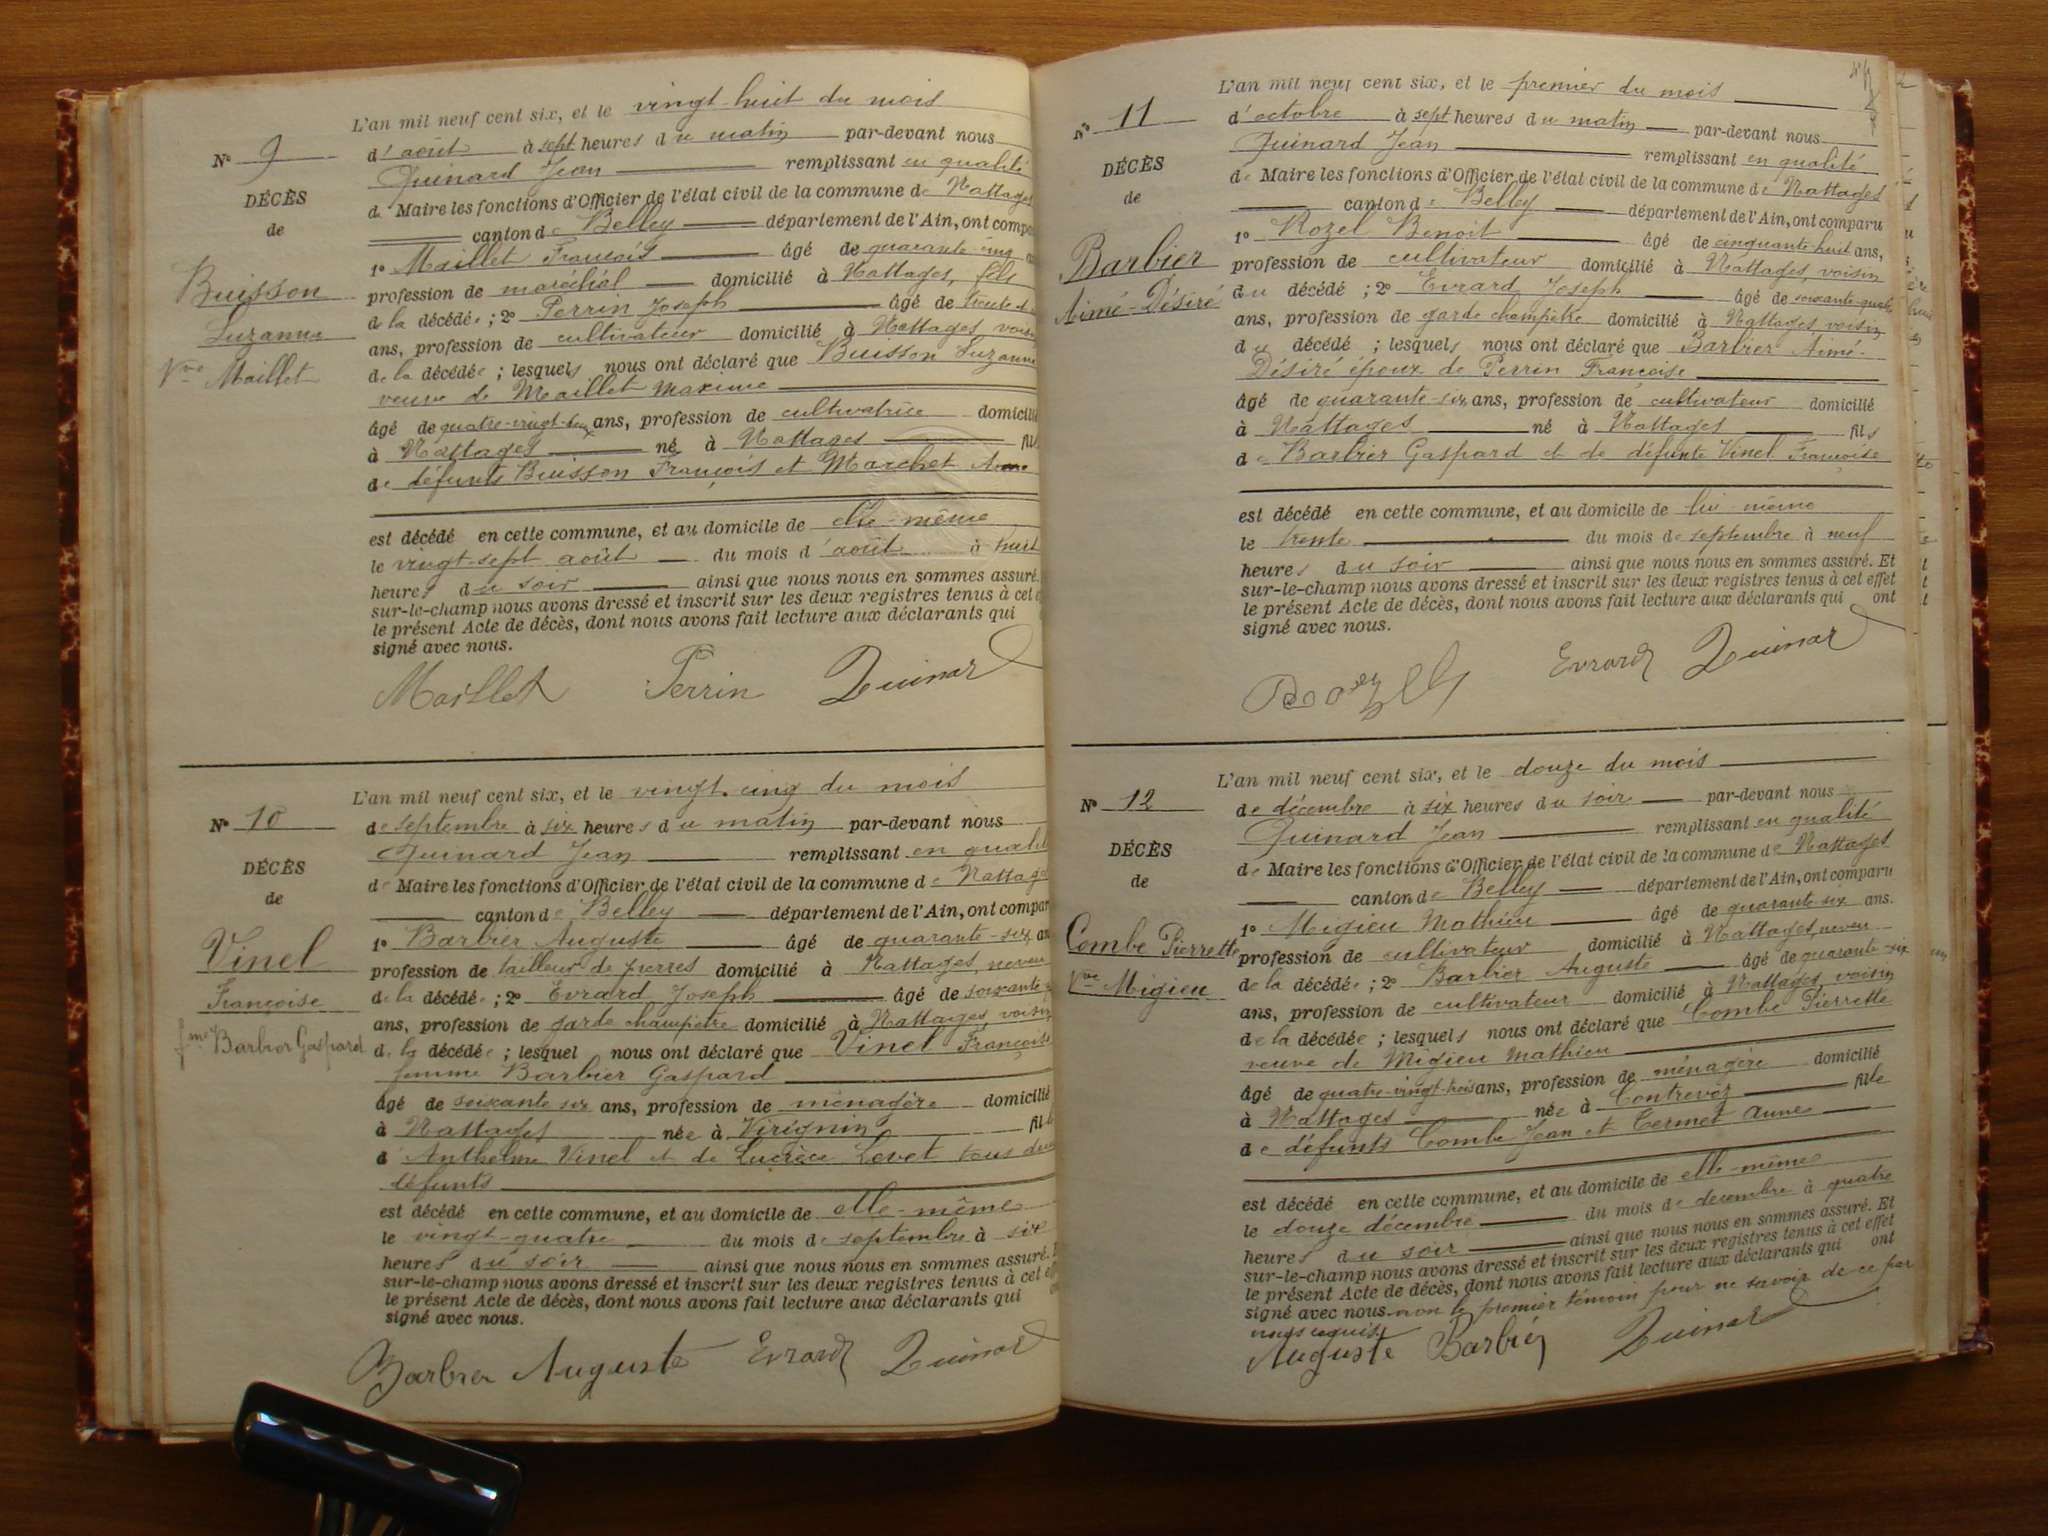 L'an mil neuf cent six, et le vingt-huit du mois
N° 9
d'août à sept heures du matin par-devant nous
Quinard Jean remplissant en qualité
DÉCÈS
de Maire les fonctions d'Officier de l'état civil de la commune de Nattages
de
canton de Belley département de l'Ain, ont compa
1° Maillet François âgé de quarante-cinq
Buisson
profession de maréchal domicilié à Nattages, fils
Suzanne
de la décédée ; 2° Perrin Joseph âgé de trente
ans, profession de cultivateur domicilié à Nattages, voisin
Vve Maillet
de la décédée ; lesquels nous ont déclaré que Buisson Suzanne
veuve de Maillet Maxime
âgé de quatre-vingt-deux ans, profession de cultivatrice domicilié
à Nattages né à Nattages fil
de défunts Buisson François et Marchet Anne
est décédé en cette commune, et au domicile de elle-même
le vingt-sept août du mois d'août à huit
heures du soir ainsi que nous nous en sommes assuré.
sur-le-champ nous avons dressé et inscrit sur les deux registres tenus à cet e
le présent Acte de décès, dont nous avons fait lecture aux déclarants qui
signé avec nous.
Maillet Perrin Quinard
L'an mil neuf cent six, et le vingt-cinq du mois
N° 10
de septembre à six heures du matin par-devant nous
Quinard Jean remplissant en qualité
DÉCÈS
de Maire les fonctions d'Officier de l'état civil de la commune de Nattages
de
canton de Belley département de l'Ain, ont compar
Vinel
1° Barbier Auguste âgé de quarante-six an
profession de tailleur de pierres domicilié à Nattages, neveu
Françoise
de la décédée ; 2° Evrard Joseph âgé de soixante
ans, profession de garde champêtre domicilié à Nattages, voisin
fme Barbier Gaspard
de la décédée ; lesquel nous ont déclaré que Vinel Françoise
femme Barbier Gaspard
âgé de soixante six ans, profession de ménagère domicilié
à Nattages née à Virignin fil
d'Anthelme Vinel et de Lucrèce Lovet tous deux
défunts
est décédé en cette commune, et au domicile de elle-même
le vingt-quatre du mois de septembre à six
heures du soir ainsi que nous nous en sommes assuré.
sur-le-champ nous avons dressé et inscrit sur les deux registres tenus à cet eff
le présent Acte de décès, dont nous avons fait lecture aux déclarants qui
signé avec nous.
Barbier Auguste Evrard Quinard
L'an mil neuf cent six, et le premier du mois
N° 11
d'octobre à sept heures du matin par-devant nous
Quinard Jean remplissant en qualité
DÉCÈS
de Maire les fonctions d'Officier de l'état civil de la commune de Nattages
de
canton de Belley département de l'Ain, ont comparu
1° Rozel Benoit âgé de cinquante-huit ans,
Barbier
profession de cultivateur domicilié à Nattages, voisin
Aimé-Désiré
du décédé ; 2° Evrard Joseph âgé de soixante-quatre
ans, profession de garde champêtre domicilié à Nattages, voisin
du décédé ; lesquels nous ont déclaré que Barbier Aimé-
Désiré époux de Perrin Françoise
âgé de quarante-six ans, profession de cultivateur domicilié
à Nattages né à Nattages fils
de Barbier Gaspard et de défunte Vinel Françoise
est décédé en cette commune, et au domicile de lui-même
le trente du mois de septembre à neuf
heures du soir ainsi que nous nous en sommes assuré. Et
sur-le-champ nous avons dressé et inscrit sur les deux registres tenus à cet effet
le présent Acte de décès, dont nous avons fait lecture aux déclarants qui ont
signé avec nous.
Evrard Quinard
L'an mil neuf cent six, et le douze du mois
N° 12
de décembre à six heures du soir par-devant nous
Quinard Jean remplissant en qualité
DÉCÈS
de Maire les fonctions d'Officier de l'état civil de la commune de Nattages
de
canton de Belley département de l'Ain, ont comparu
1° Migieu Mathieu âgé de quarante-six ans.
Combe Pierrette
profession de cultivateur domicilié à Nattages, neveu
Vve Migieu
de la décédée ; 2° Barbier Auguste âgé de quarante-six
ans, profession de cultivateur domicilié à Nattages, voisin
de la décédée ; lesquels nous ont déclaré que Combe Pierrette
veuve de Migieu Mathieu
âgé de quatre-vingt-trois ans, profession de ménagère domicilié
à Nattages née à Contrevoz fille
de défunts Combe Jean et Termet Anne
est décédé en cette commune, et au domicile de elle-même
le douze décembre du mois de décembre à quatre
heures du soir ainsi que nous nous en sommes assuré. Et
sur-le-champ nous avons dressé et inscrit sur les deux registres tenus à cet effet
le présent Acte de décès, dont nous avons fait lecture aux déclarants qui ont
signé avec nous. non le premier témoin pour ne savoir de ce par
nous requis.
Auguste Barbier Quinard